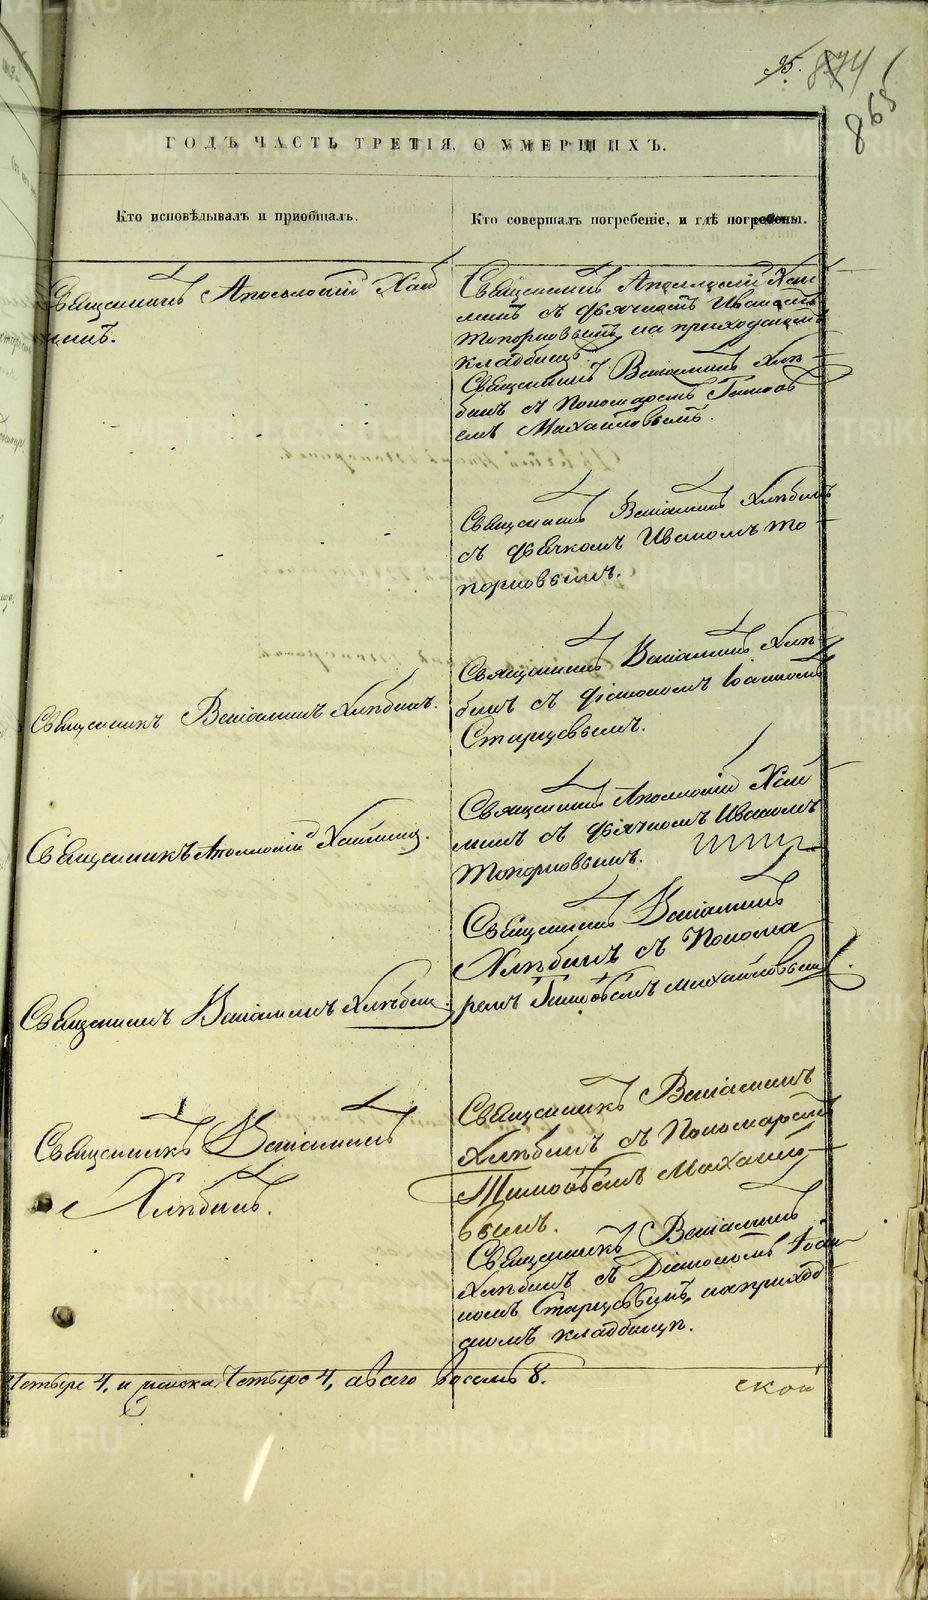 95. 874
868
ГОДЪ ЧАСТЬ ТРЕТІЯ, О УМЕРШИХЪ.
Кто исповѣдывалъ и пріобщалъ.
Кто совершалъ погребеніе, и гдѣ погребены.
Священникъ
Священникъ
съ Дьячкомъ Иваномъ
Топорковымъ, на приходскомъ
кладбищѣ.
Священникъ Веніаминъ Хлѣ-
бинъ съ Пономаремъ Тимоѳе
емъ Михайловымъ.
Священникъ Веніаминъ Хлѣбинъ
съ Дьячкомъ Иваномъ То
порковымъ.
Священникъ Веніаминъ Хлѣбинъ.
Священникъ Веніаминъ Хлѣ-
бинъ съ Діакономъ Іоанномъ
Старцевымъ.
Священникъ
Священникъ
съ Дьячкомъ Иваномъ
Топорковымъ.
Священникъ Веніаминъ Хлѣбин
Священникъ Веніаминъ
Хлѣбинъ съ Понома
ремъ Тимоѳеемъ Михайловым.
Священникъ Веніаминъ
Хлѣбинъ.
Священникъ Веніаминъ
Хлѣбинъ съ Пономаремъ
Тимоѳеемъ Михайло-
вымъ.
Священникъ Веніаминъ
Хлѣбинъ съ Діакономъ Іоан
номъ Старцевымъ, на приход
скомъ кладбищѣ.
Четыре 4, и женска Четыре 4, а всего восемь 8.
ской
METRIKI.GASO-URAL.RU